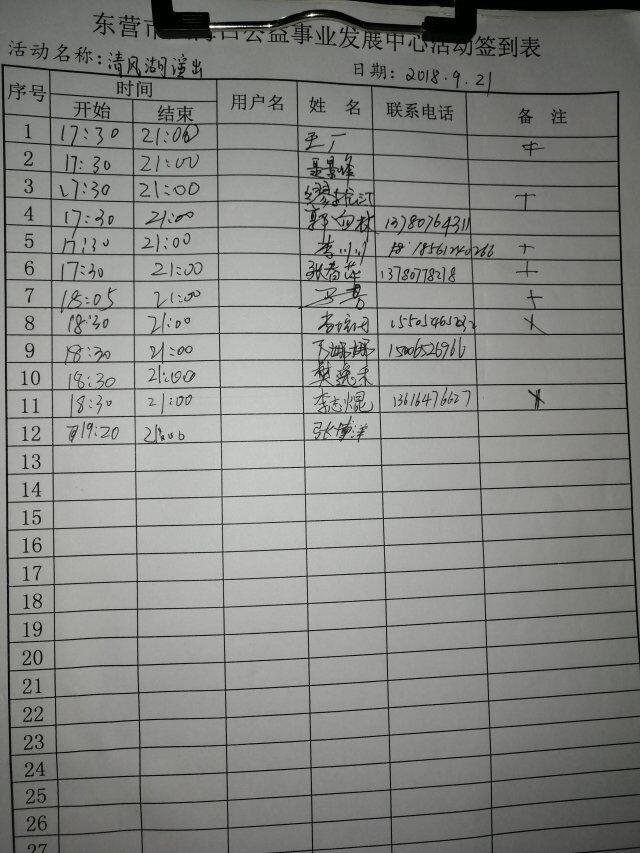 东营市 公益事业发展中心活动签到表
活动名称：清风湖演出 日期：2018.9.21
序号 时间 用户名 姓名 联系电话 备注
开始 结束
1 17:30 21:00
2 17:30 21:00
3 17:30 21:00 +
4 17:30 21:00 13780764311
5 17:30 21:00 李川川 18561240266 +
6 17:30 21:00 张春萍 13780778218 +
7 18:05 21:00 +
8 18:30 21:00 x
9 18:30 21:00 15006526966
10 18:30 21:00 樊逸禾
11 18:30 21:00 李志焜 13616476627
12 19:20 21:00 张博洋
13
14
15
16
17
18
19
20
21
22
23
24
25
26
27